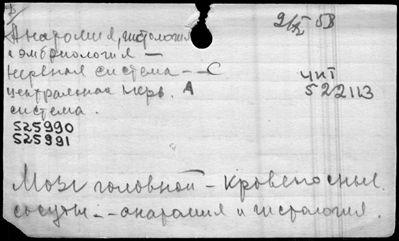 2/IX 53
Анатомия, гистология
и эмбриология —
Нервная система -- С
центральная нерв. А
система.
чит
522113
525990
525991
Мозг головной - кровеносные
сосуды -- анатомия и гистология.